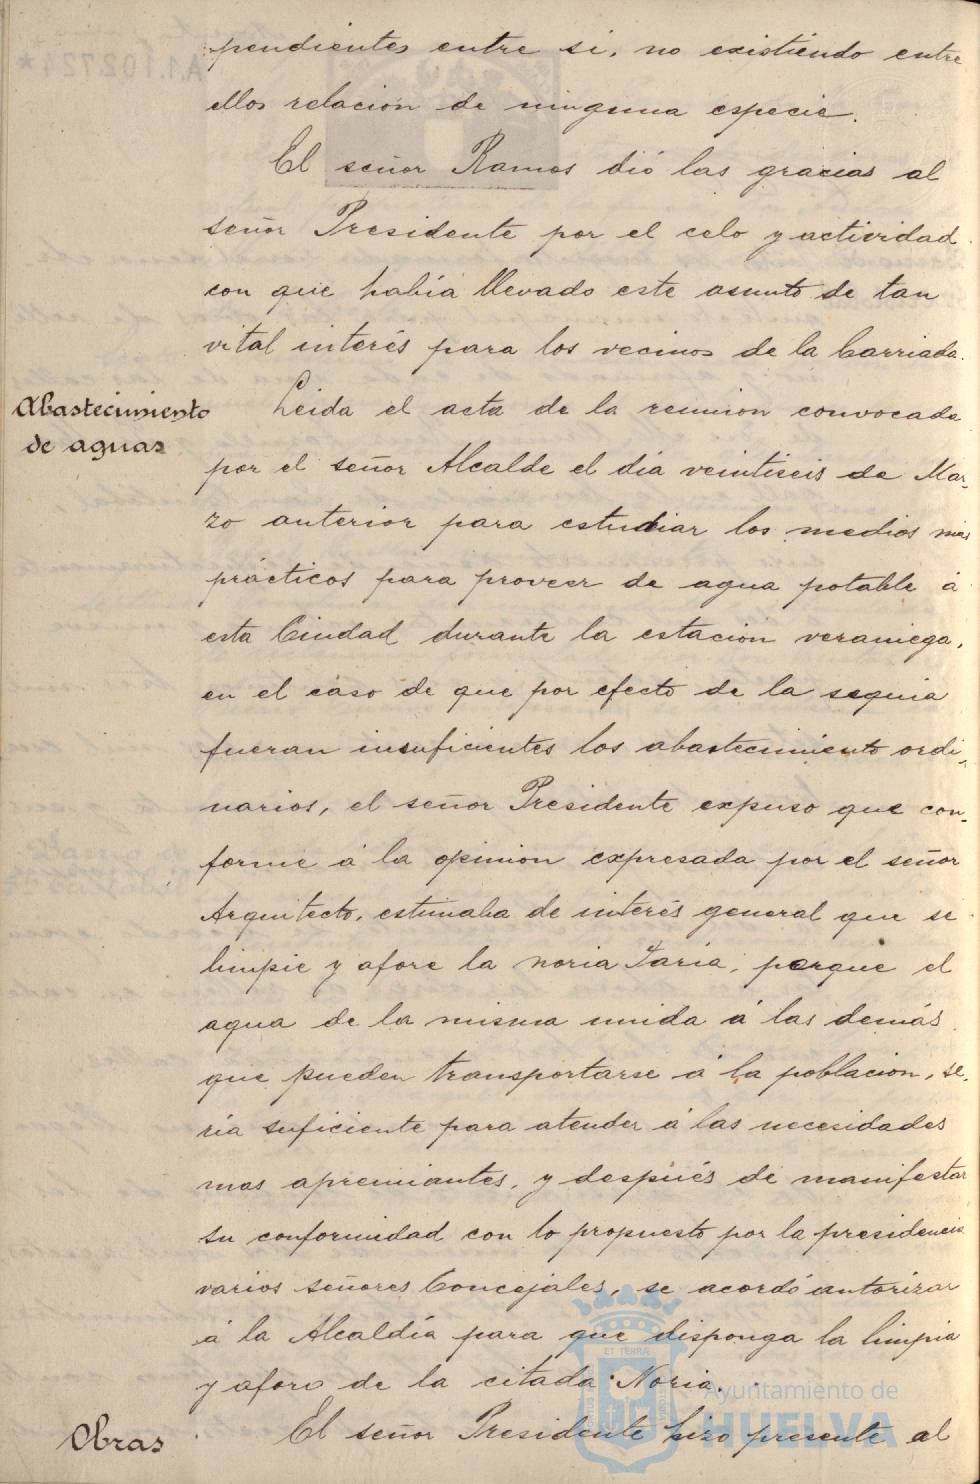 pendientes entre si, no existiendo entre
ellos relación de ninguna especie.
El señor Ramos dió las gracias al
señor Presidente por el celo y actividad
con que había llevado este asunto de tan
vital interés para los vecinos de la barriada.
Abastecimiento
de aguas
Leida el acta de la reunion convocada
por el señor Alcalde el día veintiseis de Mar-
zo anterior para estudiar los medios mas
prácticos para proveer de agua potable á
esta Ciudad durante la estación veraniega,
en el caso de que por efecto de la sequia
fueran insuficientes los abastecimiento ordi-
narios, el señor Presidente expuso que con-
forme á la opinion expresada por el señor
Arquitecto, estimaba de interés general que se
limpie y afore la noria, porque el
agua de la misma unida á las demás
que pueden transportarse á la población, se-
ría suficiente para atender á las necesidades
mas apremiantes, y después de manifestar
su conformidad con lo propuesto por la presidencia
varios señores Concejales, se acordó autorizar
á la Alcaldía para que disponga la limpia
y aforo de la citada Noria.
Obras
El señor Presidente hizo presente al
ET TERRA
Ayuntamiento de
HUELVA